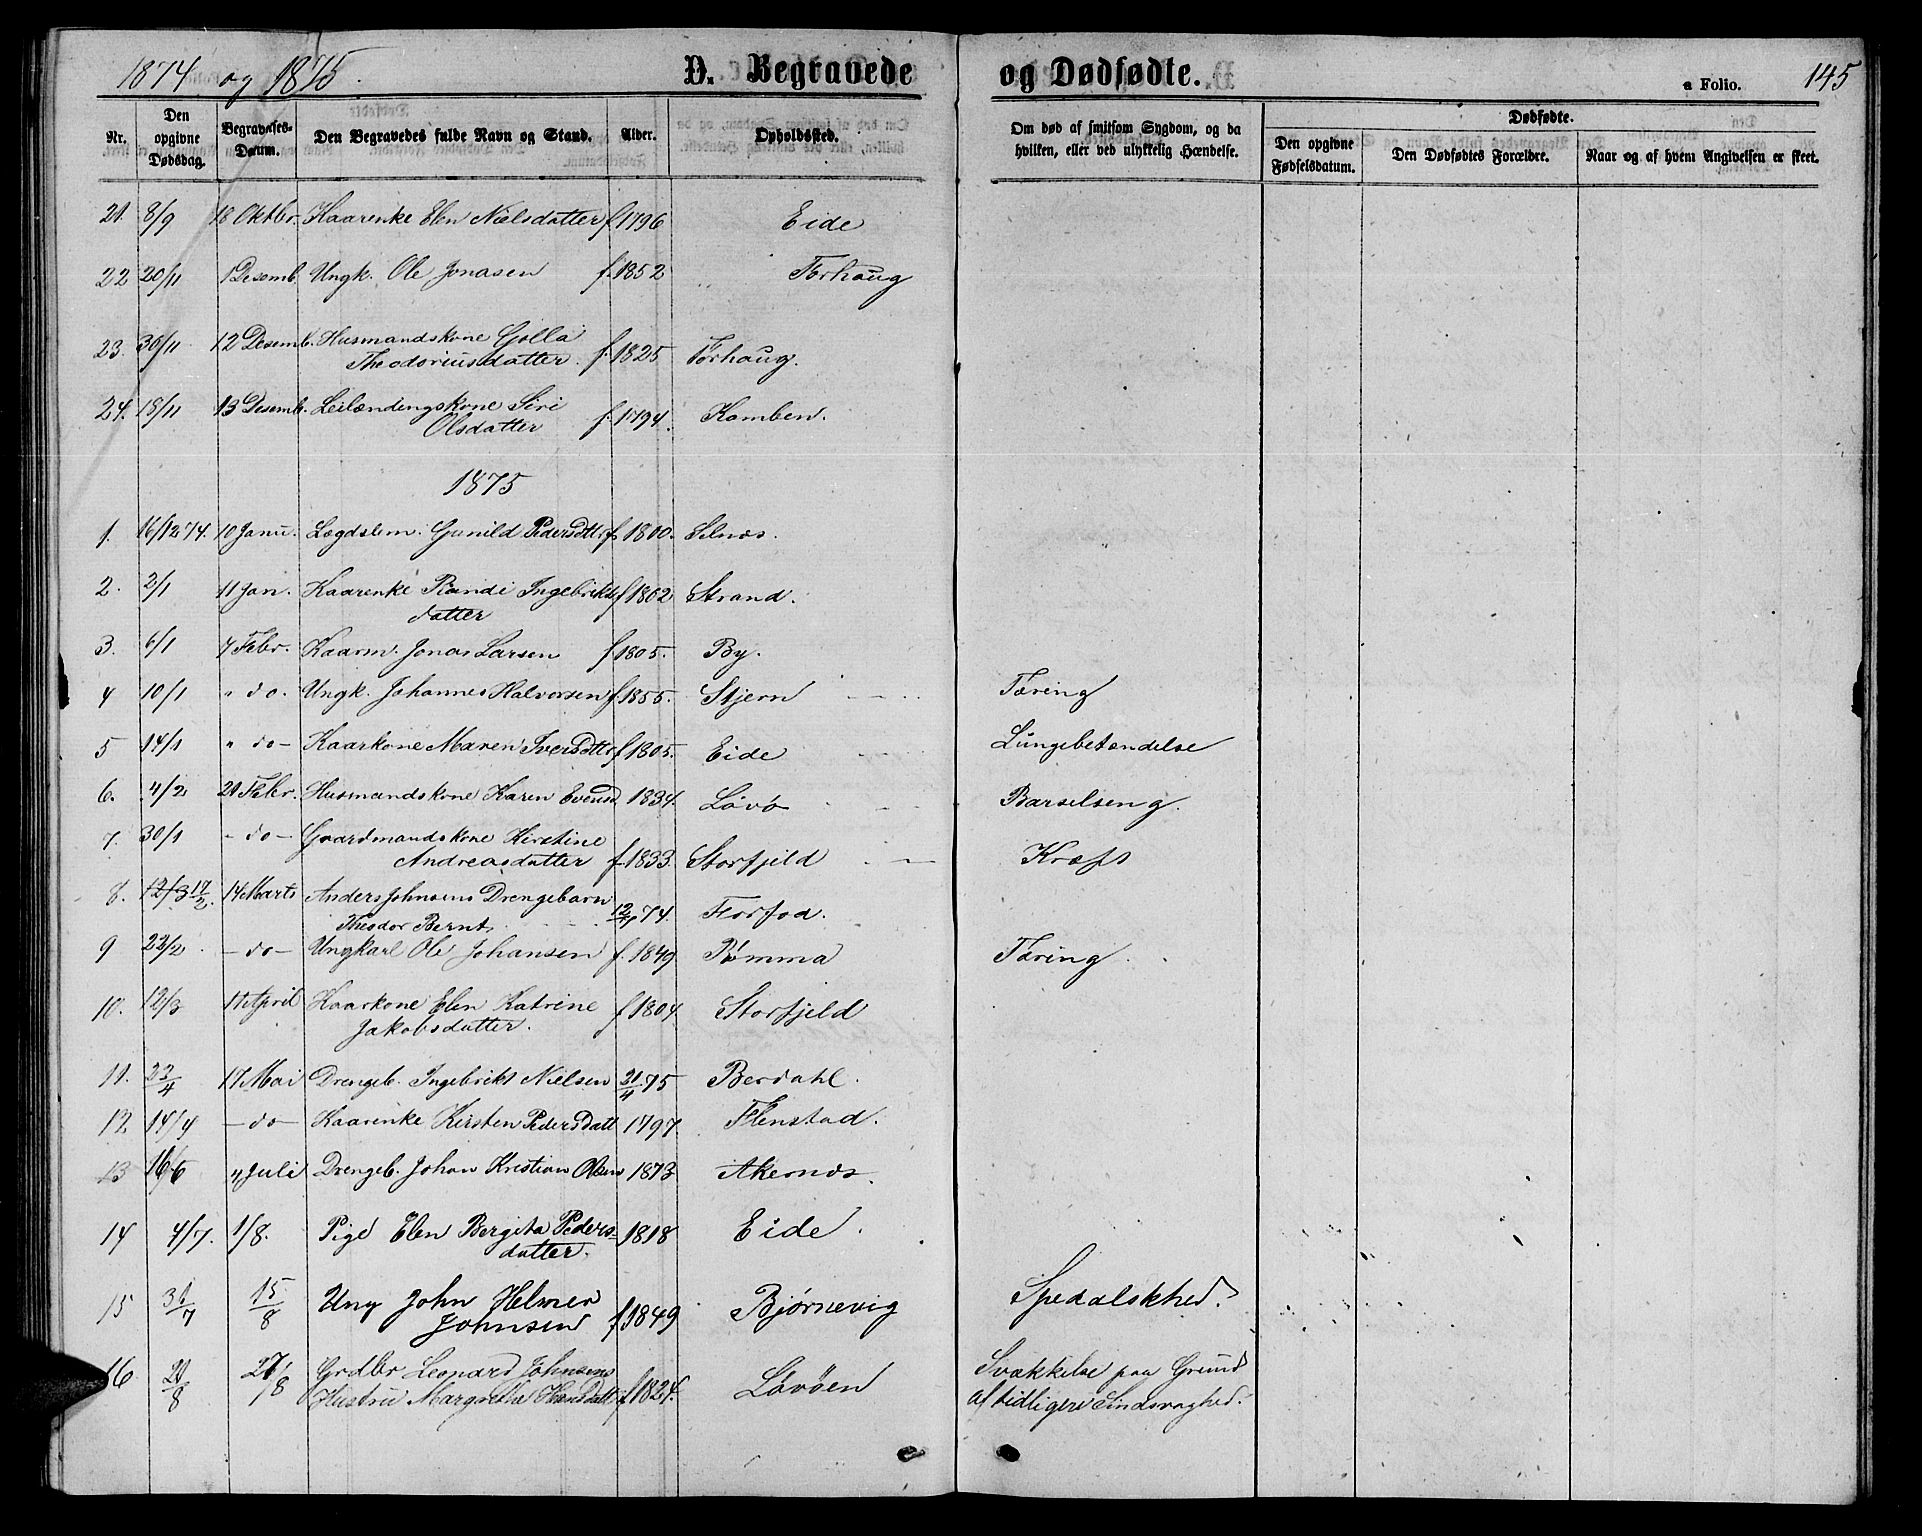 1874 og 1875.
D. Begravede og Dødfødte.
a Folio. 145
Nr. Den opgivne Dødsdag. Begravelses-Datum. Den Begravedes fulde Navn og Stand. Alder. Opholdssted. Om død af smitsom Sygdom, og da hvilken, eller ved ulykkelig Hændelse. Dødfødte.
Den opgivne Fødselsdatum. Den Dødfødtes Forældre. Naar og af hvem Angivelsen er skeet.
21. 8/9 18 Oktbr. Kaarenke Elen Nielsdatter f 1796 Eide
22 20/11 1 Desemb. Ungk. Ole Jonasen f. 1852 Forhaug
23. 30/11 12 Desemb. Husmandskone Golla
Theodoriusdatter. f. 1825 Forhaug.
24. 18/11 13 Desemb. Leilændingskone Siri
Olsdatter f. 1794. Kamben.
1875
1. 16/12 74. 10 Janu. Lægdslem. Gunild Pedersdttr f 1800. Selnæs.
2. 2/1 11 Jan. Kaarenke Randi Ingebrikts
datter f 1802 Strand.
3. 6/1 7 Febr. Kaarm. Jonas Larsen f 1805. By.
4 10/1 " do. Ungk. Johannes Halvorsen f. 1855. Stjern Tæring
5 14/1 " do - Kaarkone Maren Iversdttr f 1805. Eide Lungebetændelse
6. 4/2 21 Febr. Husmandskone Karen Evensd 1834. Løvø Barselseng.
7. 30/1 - do - Gaardmandskone Kirstine
Andreasdatter f 1833. Storfjeld Kræft
8. 12/3 17/2. 14 Marts Anders Johnsens Drengebarn
Theodor Bernt. 74. Florfod.
9 22/2 - do - Ungkarl Ole Johansen f. 1849 Rømma Tæring.
10. 12/3 11 April Kaarkone Elen Katrine
Jakobsdatter. f 1804 Storfjeld
11. 23/4 17 Mai Drengeb. Ingebrikt Nielsen 21/4 75 Berdahl.
12 14/4 - do - Kaarenke Kirsten Pedersdatt 1797. Flenstad.
13 16/6 4 Juli Drengeb. Johan Kristian Olsen 1873 Akernæs.
14 4/7. 1/8. Pige Elen Bergita Peders-
datter. 1818 Eide.
15 31/7 15/8 Ung John Helmer
Johnsen f 1849 Bjørnevig Spedalskhed.
16 21/8 27/8 Grdbr Leonard Johnsens
Hustru Margrethe Hansdatt f 1824. Løvøen Svækkelse paa Grund
af tidligere Sindsvaghed.